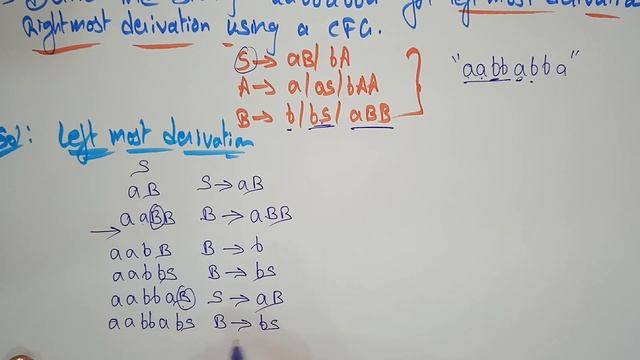 the string "aabbabba" for leftmost derivation
Rightmost derivation using a CFG.
S → aB/ bA
A → a/as/bAA
B → b/bs/aBB
"aabbabba"
Sol: Left most derivation
S
aB S → aB
→ aaBB B → aBB
aabB B → b
aabbs B → bs
aabbaB S → aB
aabbabs B → bs